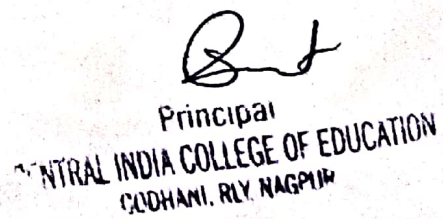 Principal
CENTRAL INDIA COLLEGE OF EDUCATION
GODHANI, RLY. NAGPUR